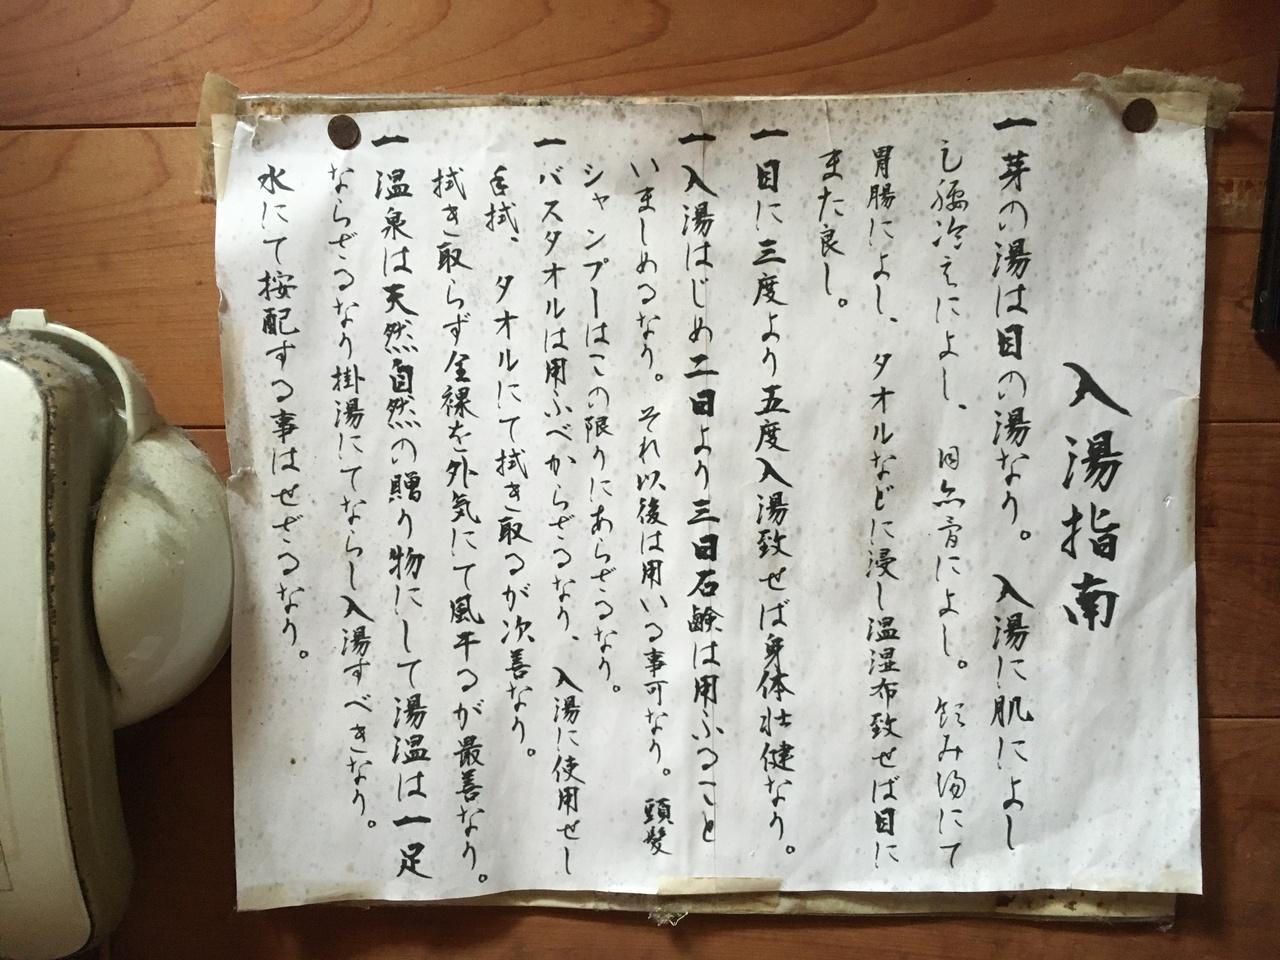 入湯指南
一芽の湯は目の湯なり。入湯に肌によし
腰冷えによし、
によし。飲み湯にて
胃腸によし、タオルなどに浸し温湿布致せば目に
また良し。
一日に三度より五度入湯致せば身体壮健なり。
一入湯はじめ二日より三日石鹸は用ふること
いましめるなり。それ以後は用いる事可なり。頭髪
シャンプーはこの限りにあらざるなり。
一バスタオルは用ふべからざるなり、入湯に使用せし
手拭、タオルにて拭き取るが次善なり。
拭き取らず全裸を外気にて風干るが最善なり。
一温泉は天然自然の贈り物にして湯温は一足
ならざるなり掛湯にてならし入湯すべきなり。
水にて按配する事はせざるなり。